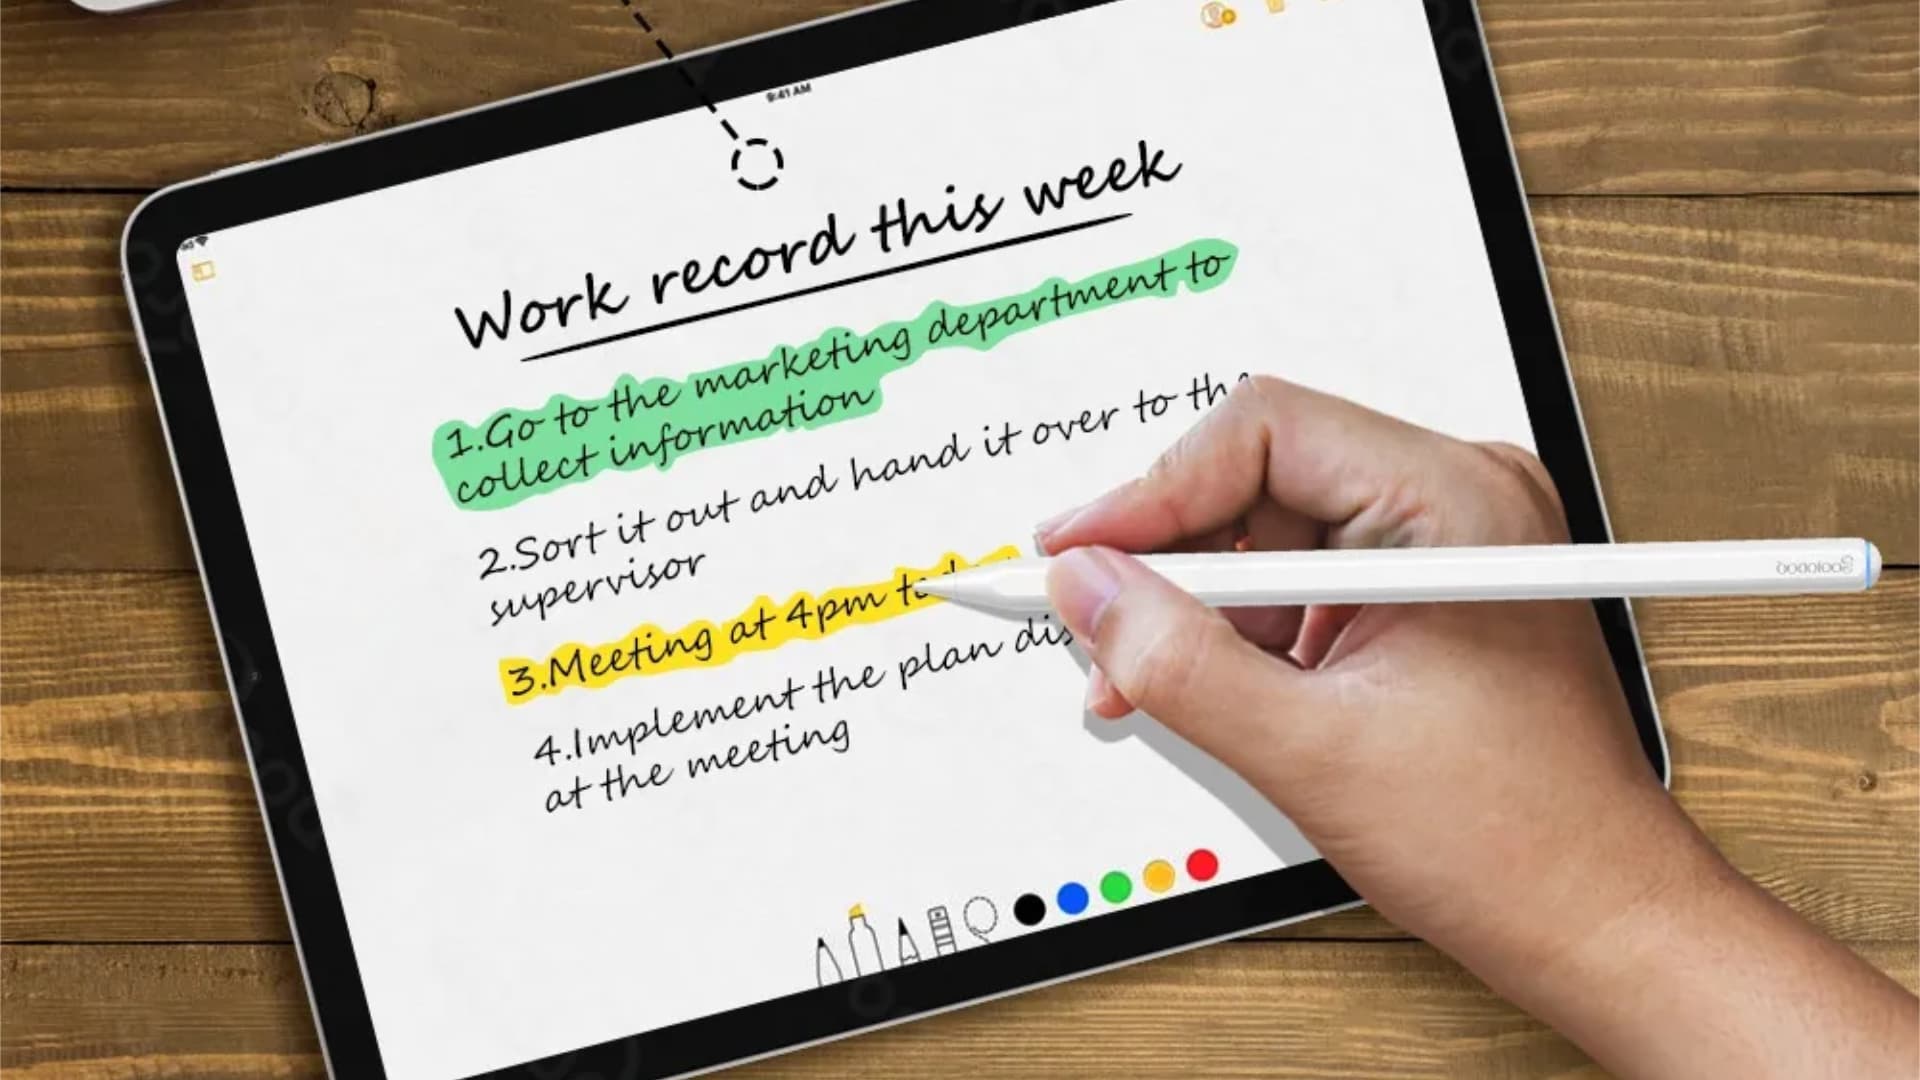 9:41 AM
Work record this week
1.Go to the marketing department to
collect information
2.Sort it out and hand it over to
supervisor
3.Meeting at 4pm
4.Implement the plan
at the meeting